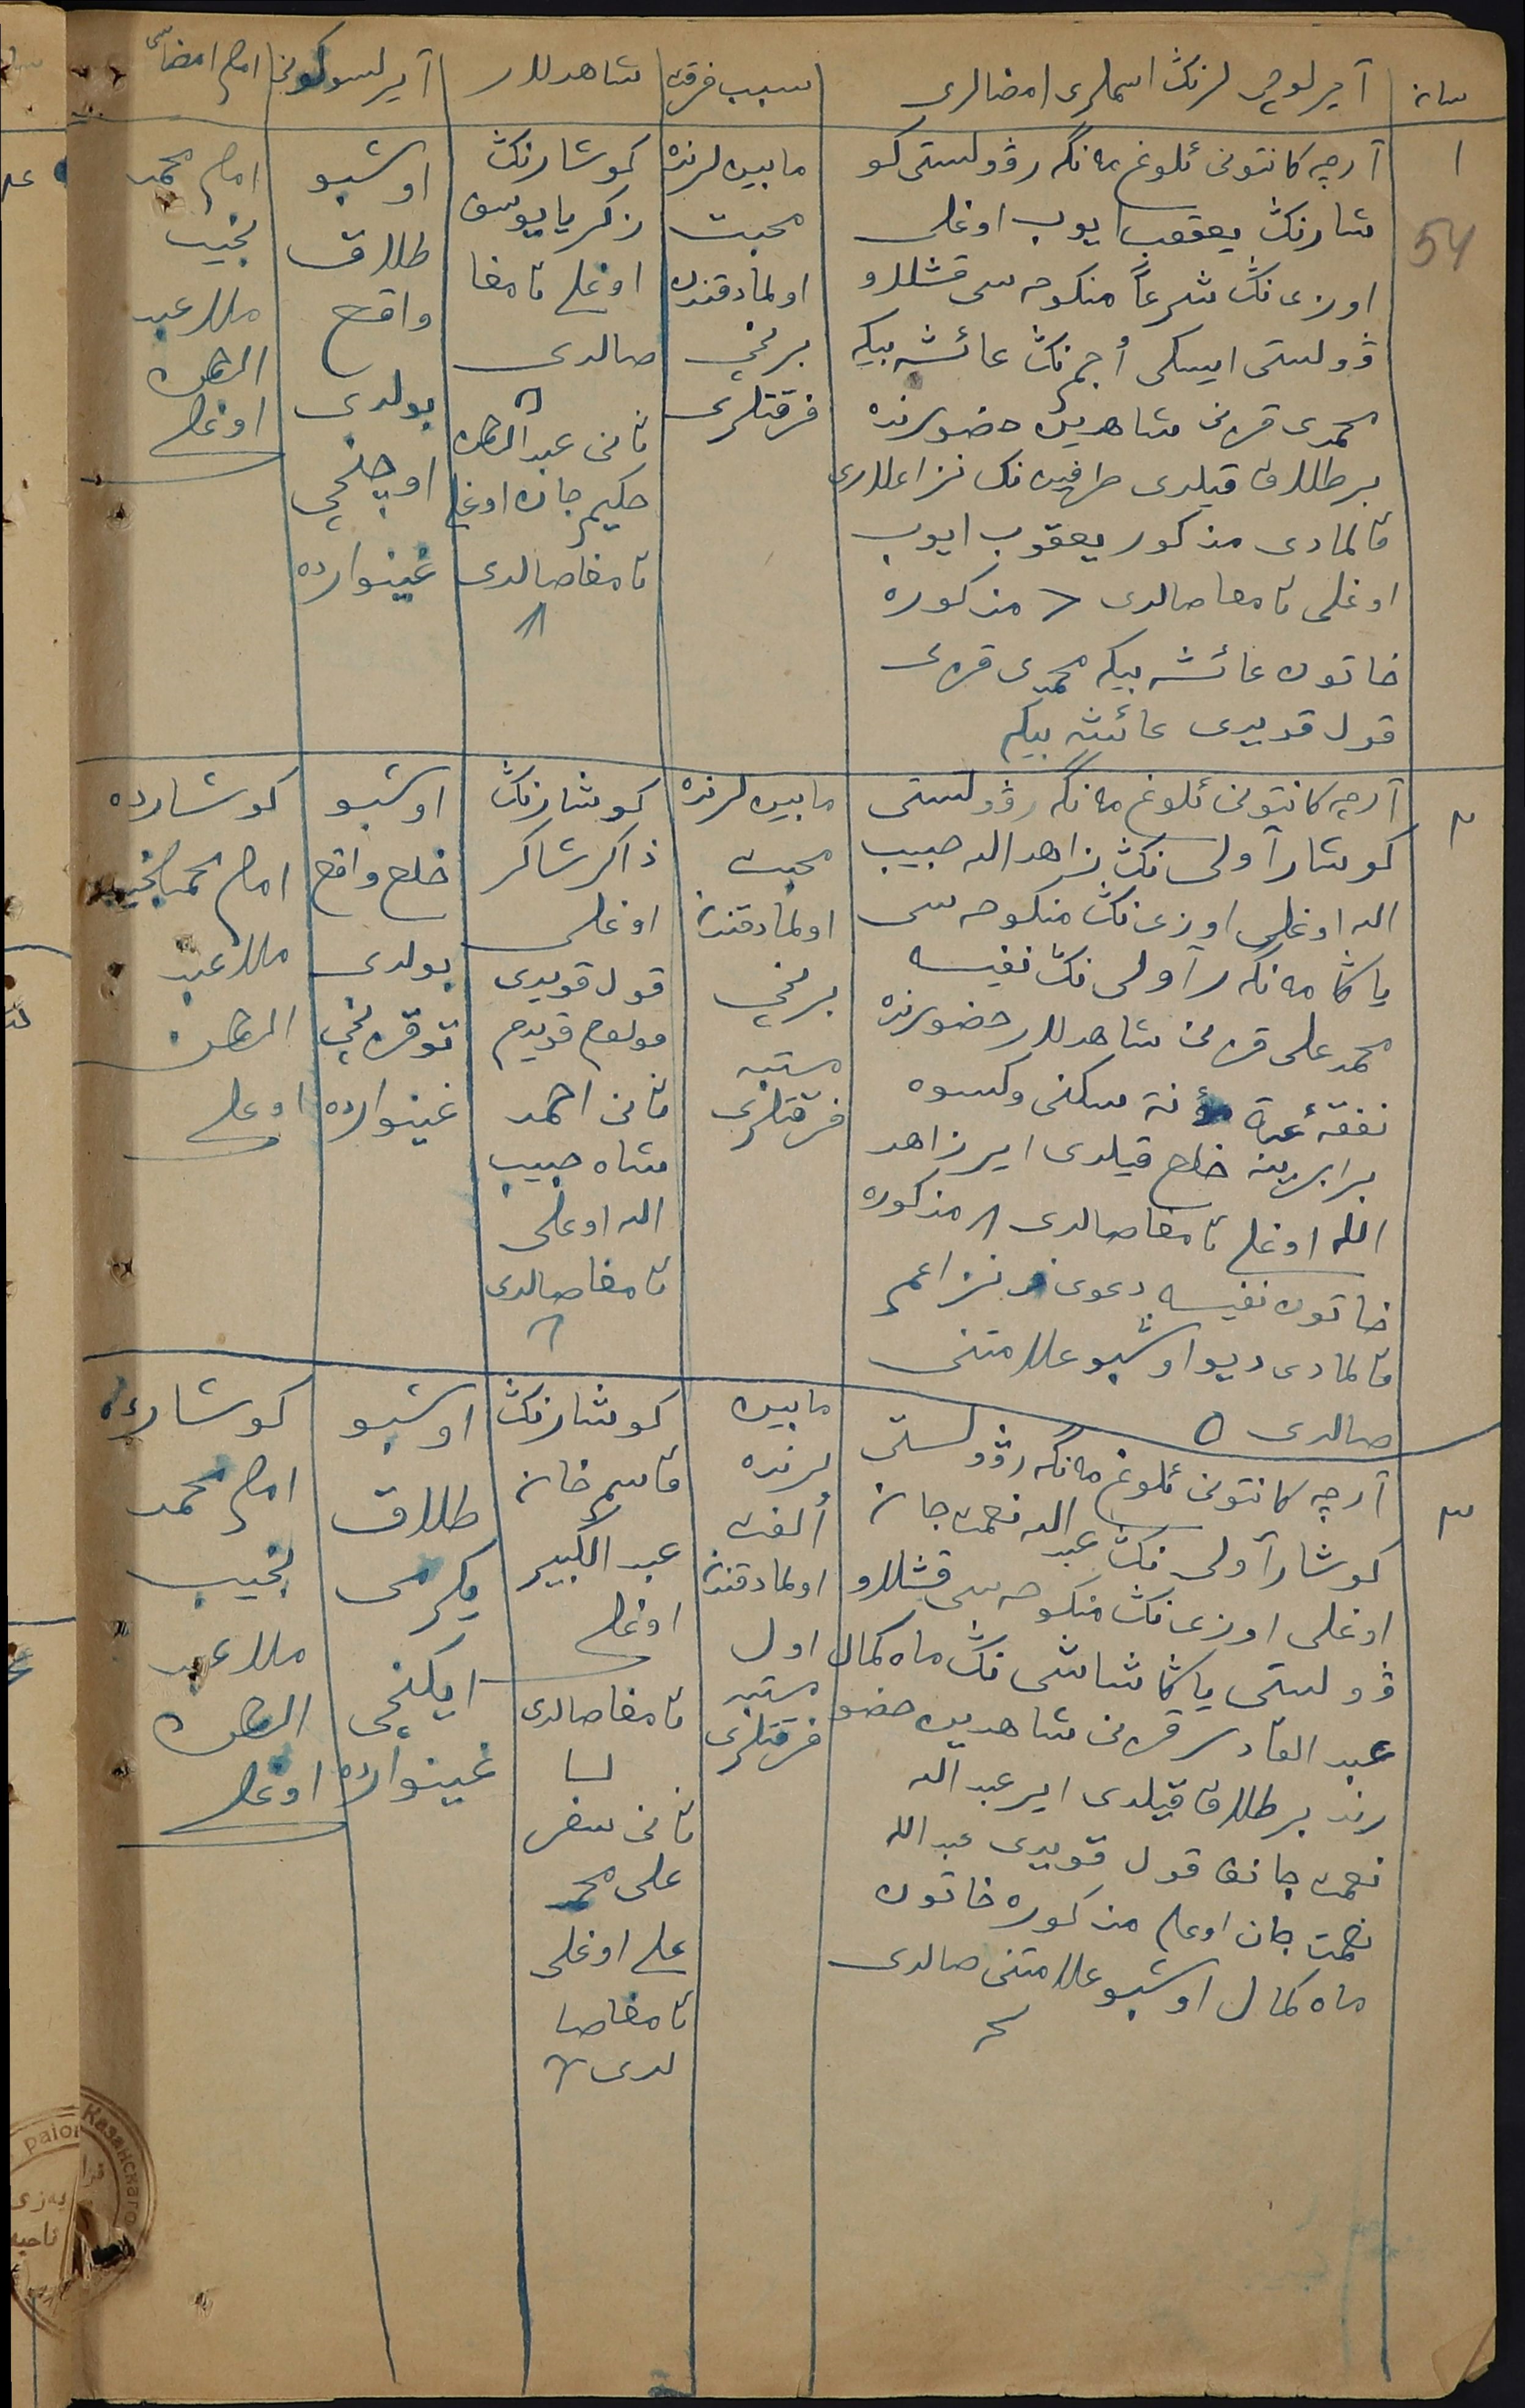 سان
آیرلوچی لرنڭ اسملری امضالری
سبب فرقت
شاهدلار
آیرلسو کونی
امام امضاسی
١
54
آرچه کانتونی ئلوغ مه نگه ر ڤولستی کو
شارنڭ یعقوب ایوب اوغلی
اوزی نڭ شرعاً منکوحه سی قشللاو
ڤولستی ایسکی أجم نڭ عائشه بیکه
محمدی قزنی شاهدین حضورنده
بر طللاق قیلدی طرفین نڭ نزاعلاری
قالمادی مذکور یعقوب ایوب
اوغلی تامغا صالدی > مذکوره
خاتون عائشه بیکه محمدی قزی
قول قویدی عائشه بیکه
مابین لرنده
محبت
اولمادقندن
برنچی
فرقتلری
کوشارنڭ
زکریا یوسف
اوغلی تامغا
صالدی
ثانی عبدالرحمن
حکیم جان اوغلی
تامغا صالدی
٨
اوشبو
طللاق
واقع
بولدی
اوچنچی
غینوارده
امام محمد
نجیب
ملا عبد
الرحمن
اوغلی
٢
آرچه کانتونی ئلوغ مه نگه ر ڤولستی
کوشار آولی نڭ زاهد الله حبیب
الله اوغلی اوزی نڭ منکوحه سی
یاڭا مه نگه ر آولی نڭ نفیسه
محمد علی قزنی شاهدلار حضورنده
نفقهٔ عدة مؤنة سکنی وکسوه
برابرینه خلع قیلدی ایر زاهد
الله اوغلی تامغا صالدی ٨ مذکوره
خاتون نفیسه دعوی و نزاعم
قالمادی دیو اوشبو علامتنی
صالدی ٥
مابین لرنده
محبت
اولمادقندن
برنچی
مرتبه
فرقتلری
کوشارنڭ
ذاکر شاکر
اوغلی
قول قویدی
قولوم قویدم
ثانی احمد
شاه حبیب
الله اوغلی
تامغا صالدی
٨
اوشبو
خلع واقع
بولدی
توقزنچی
غینوارده
کوشارده
امام محمد نجیب
ملا عبد
الرحمن
اوغلی
٣
آرچه کانتونی ئلوغ مه نگه ر ڤولستی
کوشار آولی نڭ عبد الله نعمت جان
اوغلی اوزی نڭ منکوحه سی قشللاو
ڤولستی یاڭا شاشی نڭ ماه کمال
عبد القادر قزنی شاهدین حضو
رنده بر طللاق قیلدی ایر عبد الله
نعمت جانف قول قویدی عبد الله
نعمت جان اوغلی مذکوره خاتون
ماه کمال اوشبو علامتنی صالدی
مابین
لرنده
ألفت
اولمادقندن
اول
مرتبه
فرقتلری
کوشارنڭ
قاسم خان
عبد الکبیر
اوغلی
تامغا صالدی
ثانی سفر
علی محمد
علی اوغلی
تامغا صا
لدی
اوشبو
طللاق
یکرمی
ایکنچی
غینوارده
کوشارده
امام محمد
نجیب
ملا عبد
الرحمن
اوغلی
Казанскаго